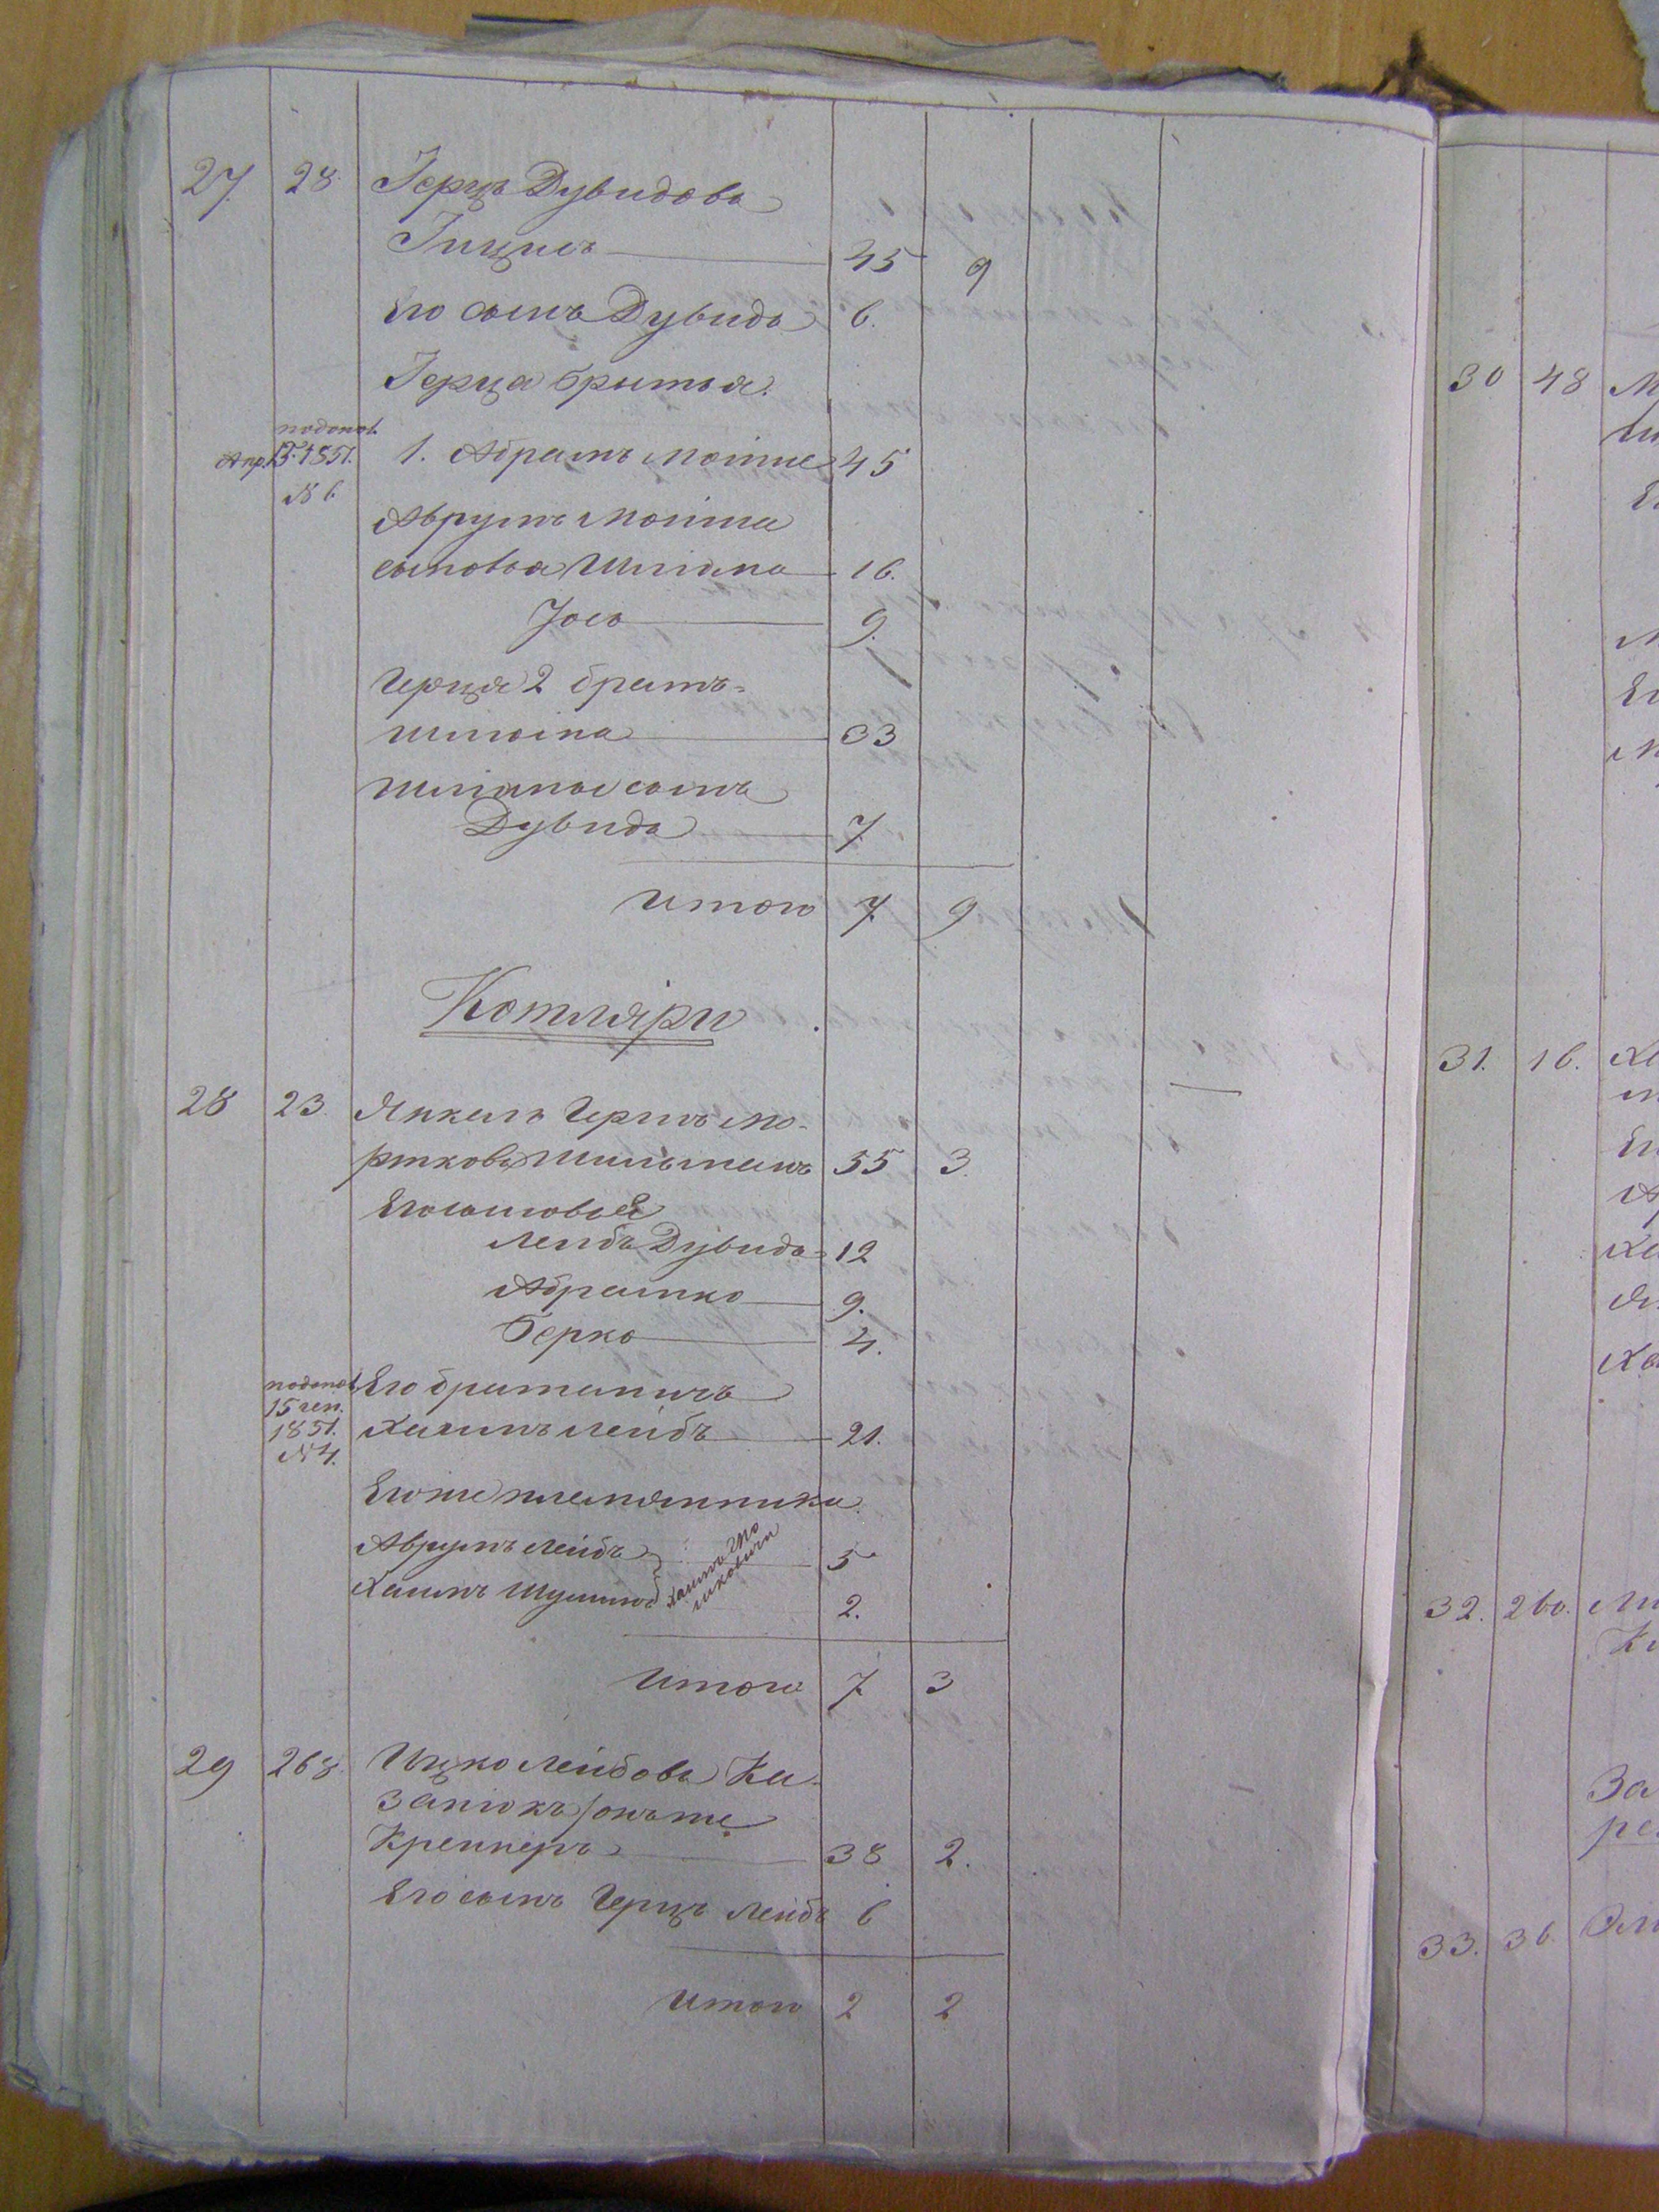 27. 28. Герцъ Дувидовъ
Гицисъ 45 9
Его сынъ Дувидъ 6.
Герца братья.
подопол.
Апр. 15. 1851.
№ 6
1. Абрамъ Мошне 45
Аврумъ Мошна
сыновья Шліома 16.
Іось 9.
Герца 2 братъ
Шліома 33
Шліомы сынъ
Дувидъ 7
Итого 7 9
Котляри
28 23. Янкель Гершъ Мо-
ртковъ Шильманъ 55 3.
Его сыновья
Лейбъ Дувидъ 12
Абрамко 9.
Берко 4.
подопол
15 ген.
1851.
№ 4.
Его братаничъ
Хаимъ Лейбъ 21.
Его же племянники
Аврумъ Лейбъ 5
Хаимъ Шулимъ 2.
Итого 7 3
29 268. Ицко Лейбовъ Ка-
занюкъ онъ же
Креннеръ 38 2.
Его сынъ Герцъ Лейбъ 6
Итого 2 2
30 48
31. 16.
32. 260.
33. 36.